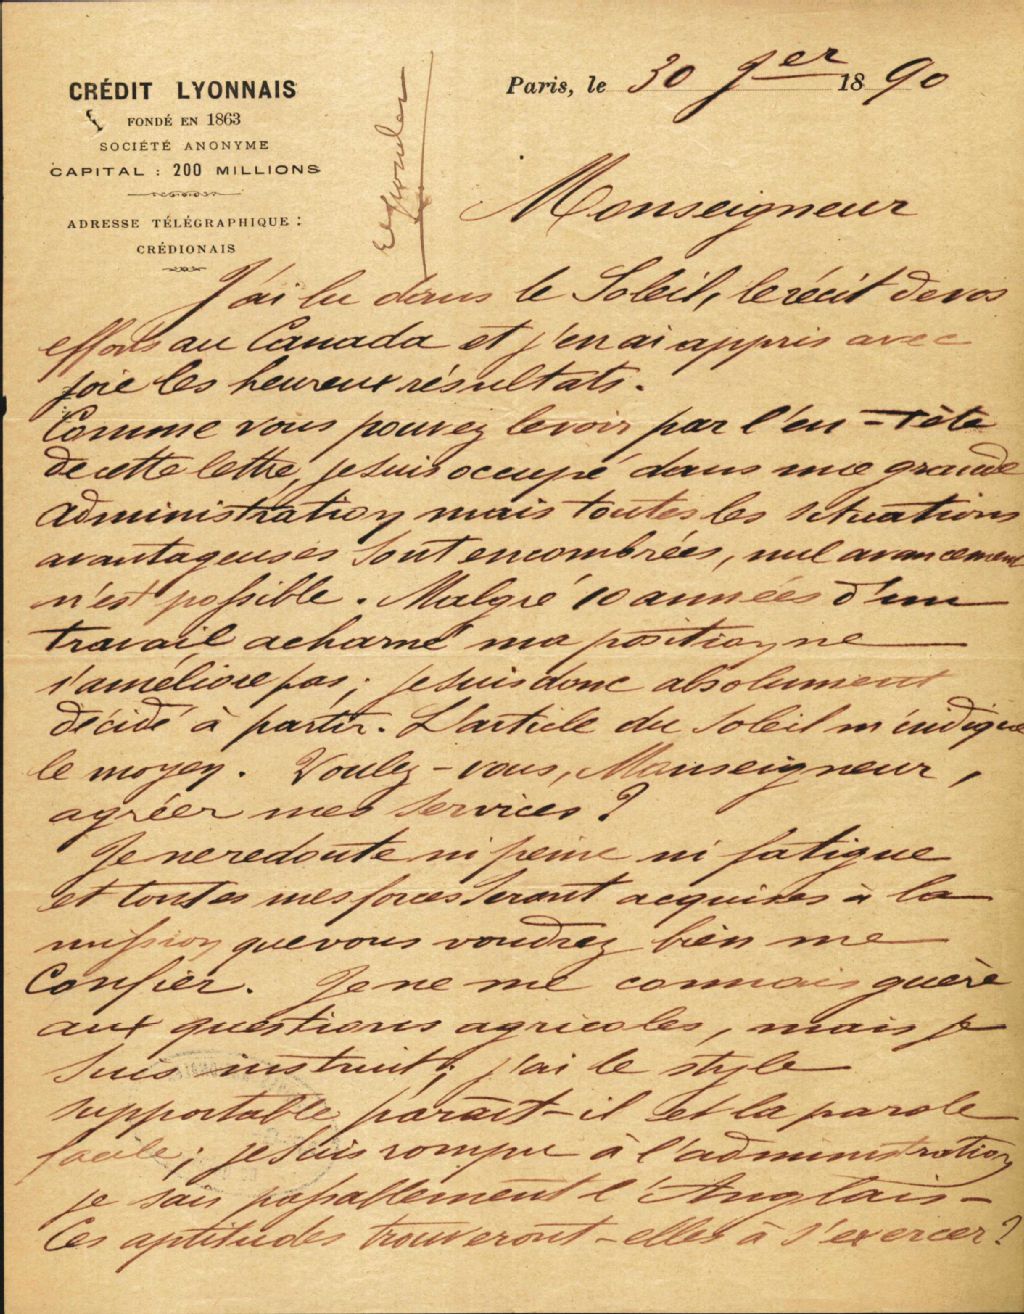 CRÉDIT LYONNAIS
FONDÉ EN 1863
SOCIÉTÉ ANONYME
CAPITAL : 200 MILLIONS
ADRESSE TÉLÉGRAPHIQUE :
CRÉDIONAIS
Paris, le 30 9er 1890
Monseigneur
J'ai lu dans le Soleil, le récit de vos
efforts au Canada et j'en ai appris avec
joie les heureux résultats.
Comme vous pouvez le voir par l'en-tête
de cette lettre, je suis occupé dans une grande
administration mais toutes les situations
avantageuses sont encombrées, nul avancement
n'est possible. Malgré 10 années d'un
travail acharné ma position ne
s'améliore pas; je suis donc absolument
décidé à partir. L'article du Soleil m'indique
le moyen. Voulez-vous, Monseigneur,
agréer mes services ?
Je ne redoute ni peine ni fatigue
et toutes mes forces seront acquises à la
mission que vous voudrez bien me
confier. Je ne me connais guère
aux questions agricoles, mais je
suis instruit; j'ai le style
supportable paraît-il et la parole
facile; je suis rompu à l'administration
je sais passablement l'Anglais -
Ces aptitudes trouveront-elles à s'exercer ?